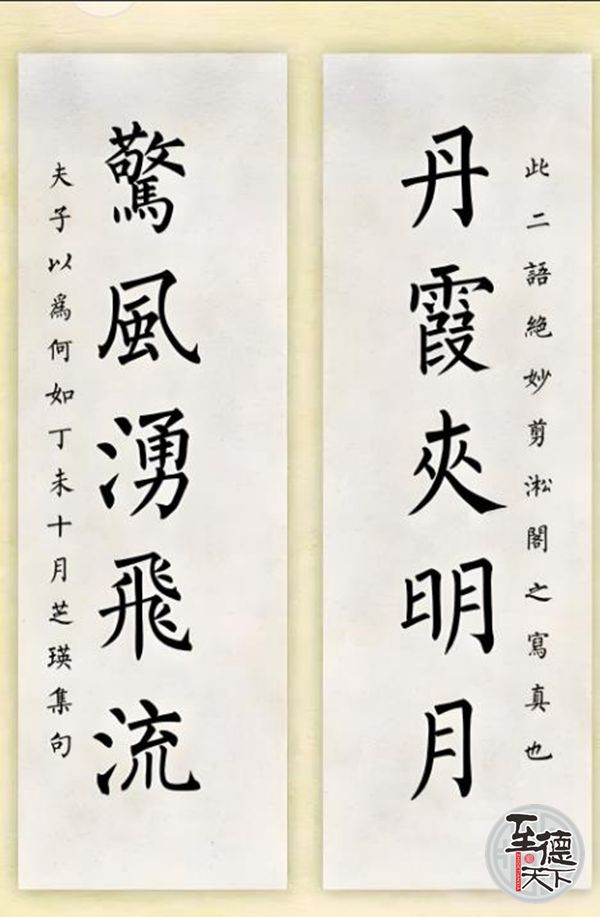 此二語絕妙剪淞閣之寫真也
丹霞夾明月
驚風湧飛流
夫子以為何如丁未十月芝瑛集句
至德天下